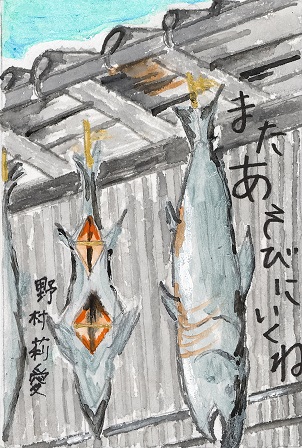 またあそびにいくね
野村莉愛